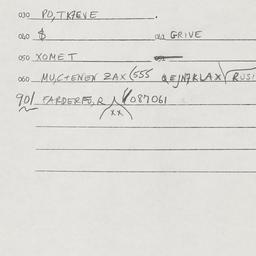 030 PO,TKAEVE .
040 $ 042 GRIVE
050 XOMET
060 MU,C+ENEN ZAX (555 QEJNAKLAX RUSI
901 FARDERFO,R 087061
xx